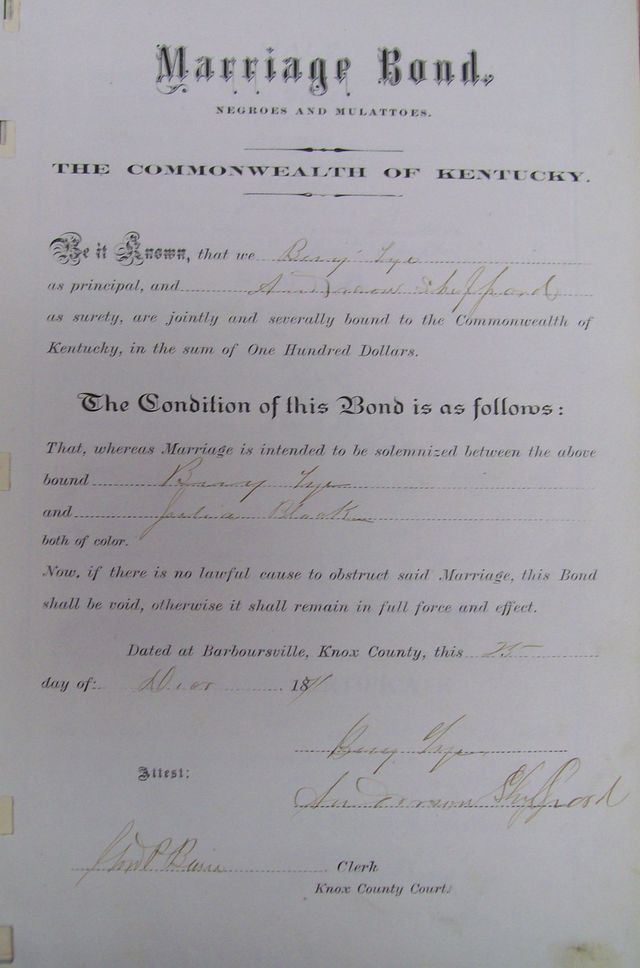 Marriage Bond.
NEGROES AND MULATTOES.
THE COMMONWEALTH OF KENTUCKY.
Be it Known, that we Berry Tye
as principal, and Anderson Sheffard
as surety, are jointly and severally bound to the Commonwealth of
Kentucky, in the sum of One Hundred Dollars.
The Condition of this Bond is as follows:
That, whereas Marriage is intended to be solemnized between the above
bound Berry Tye
and Julia Black
both of color.
Now, if there is no lawful cause to obstruct said Marriage, this Bond
shall be void, otherwise it shall remain in full force and effect.
Dated at Barboursville, Knox County, this 25
day of: 18
Berry Tye
Attest:
Anderson Sheffard
Clerk
Knox County Court.